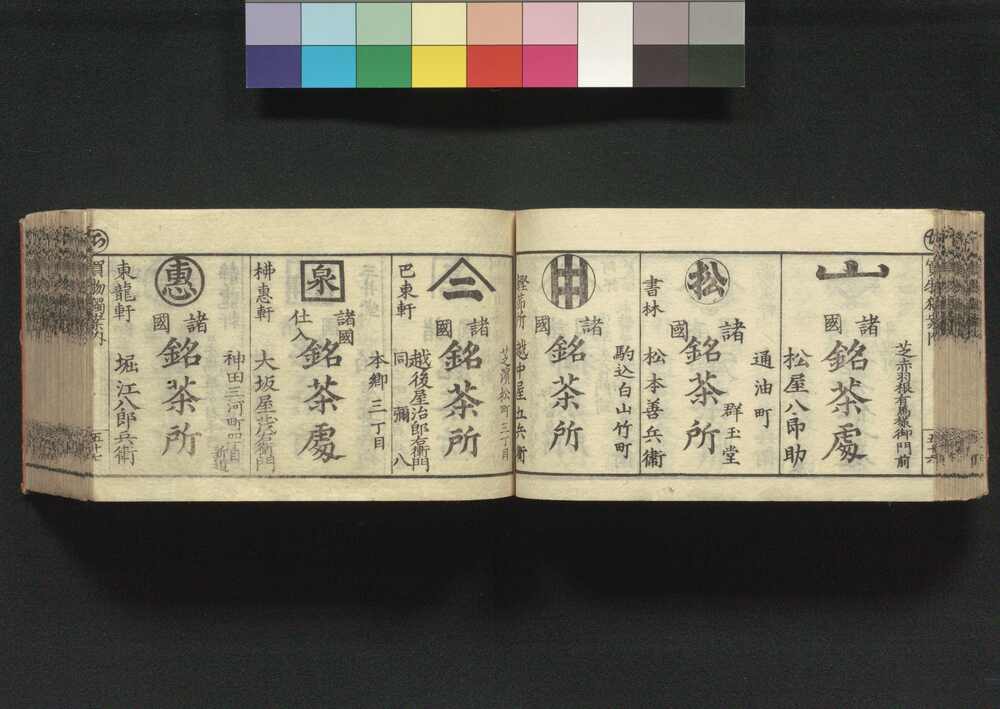 芝赤羽根有馬様御門前
諸國
銘茶處
松屋八郎助
通油町
群玉堂
松
諸國
銘茶所
書林
松本善兵衞
駒込白山竹町
諸國
銘茶所
越中屋五兵衞
芝濱松町三丁目
諸國
銘茶所
越後屋治郎右衞門
同 彌八
巴東軒
本郷三丁目
泉
諸國
仕入
銘茶處
大坂屋茂右衞門
神田三河町四丁目
新道
惠
諸國
銘茶所
東龍軒
堀江八郎兵衞
ち
買物獨案内
五十七